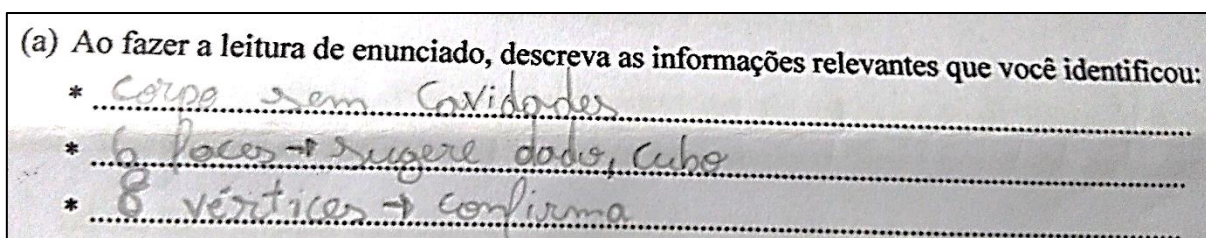 (a) Ao fazer a leitura de enunciado, descreva as informações relevantes que você identificou:
* Corpo sem Cavidades
* 6 faces → sugere dado, Cubo
* 8 vértices → confirma